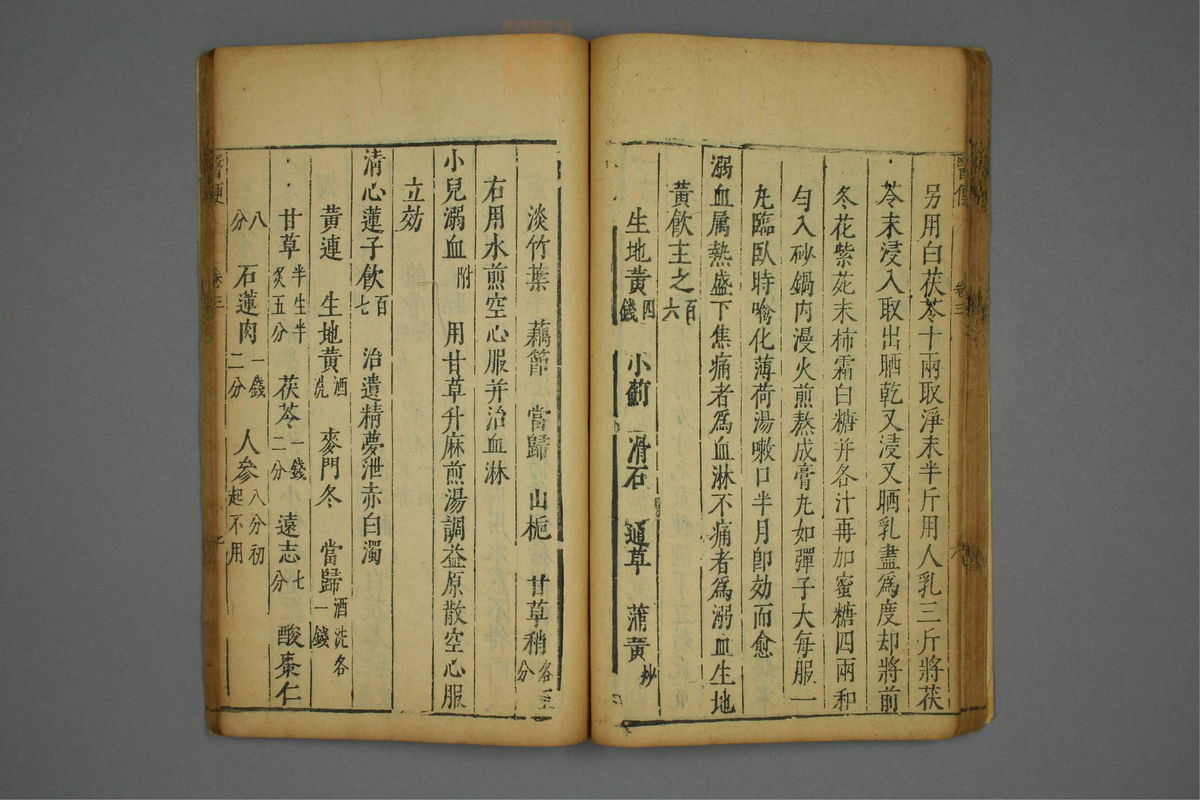 醫便
卷三
六
另用白茯苓十兩取淨末半斤用人乳三斤將茯
苓末浸入取出晒乾又浸又晒乳盡爲度却將前
冬花紫菀末柿霜白糖并各汁再加蜜糖四兩和
勻入砂鍋内漫火煎熬成膏丸如彈子大每服一
丸臨臥時噙化薄荷湯嗽口半月卽効而愈
溺血属熱盛下焦痛者爲血淋不痛者爲溺血生地
黃飲主之百六
生地黃四錢 小薊 滑石 通草 蒲黃炒
淡竹葉 藕節 當歸 山梔 甘草稍各五分
右用水煎空心服并治血淋
小兒溺血附 用甘草升麻煎湯調益原散空心服
立効
清心蓮子飲百七 治遺精夢泄赤白濁
黃連 生地黃酒洗 麥門冬 當歸酒洗各一錢
甘草半生半炙五分 茯苓一錢二分 遠志七分 酸棗仁
八分 石蓮肉一錢二分 人參八分初起不用
醫便
卷三